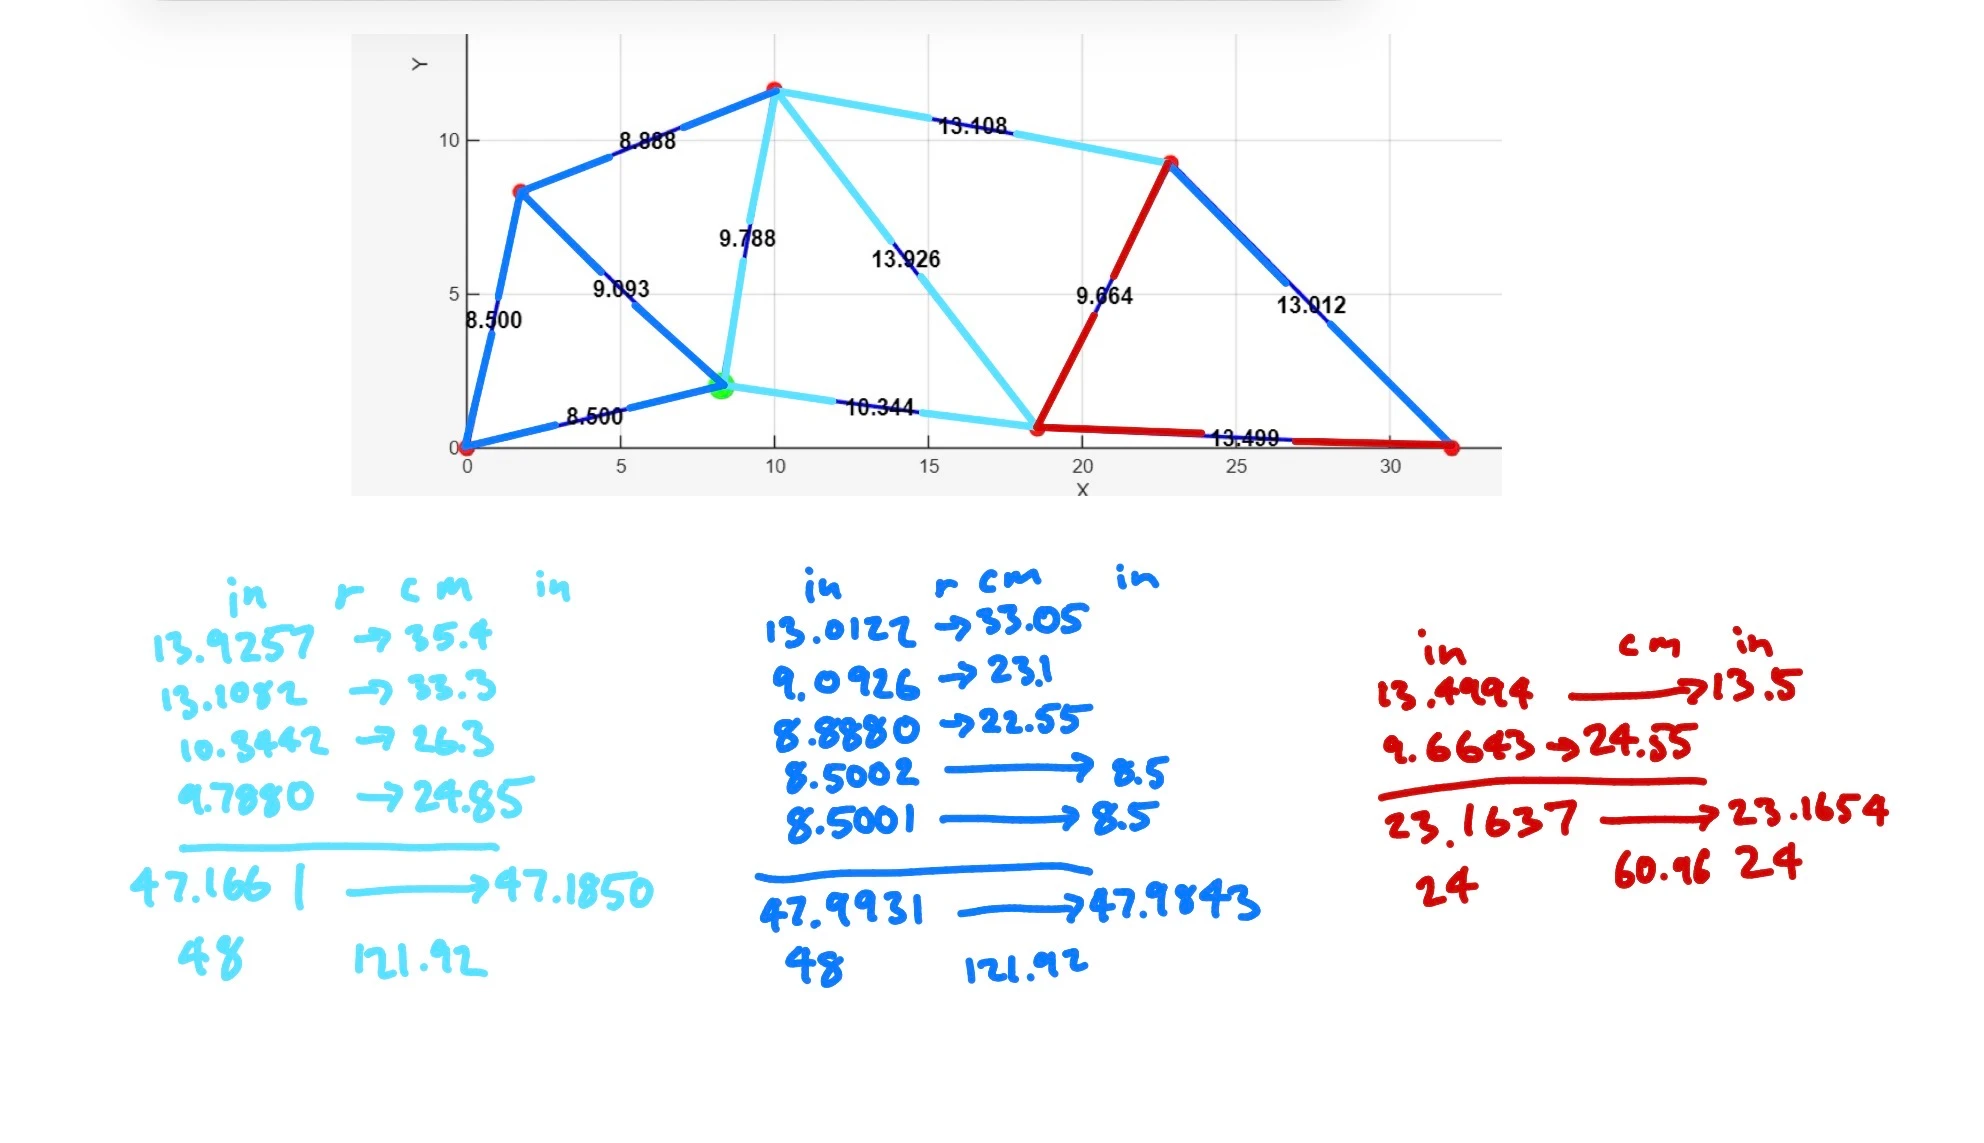 Y
10
5
0
0 5 10 15 20 25 30
X
8.888
13.108
9.788
13.926
9.093
9.664
13.012
8.500
8.500
10.344
13.499
in r cm in
13.9257 → 35.4
13.1082 → 33.3
10.3442 → 26.3
9.7880 → 24.85
47.1661 → 47.1850
48 121.92
in r cm in
13.0122 → 33.05
9.0926 → 23.1
8.8880 → 22.55
8.5002 → 8.5
8.5001 → 8.5
47.9931 → 47.9843
48 121.92
in cm in
13.4994 → 13.5
9.6643 → 24.55
23.1637 → 23.1654
24 60.96 24